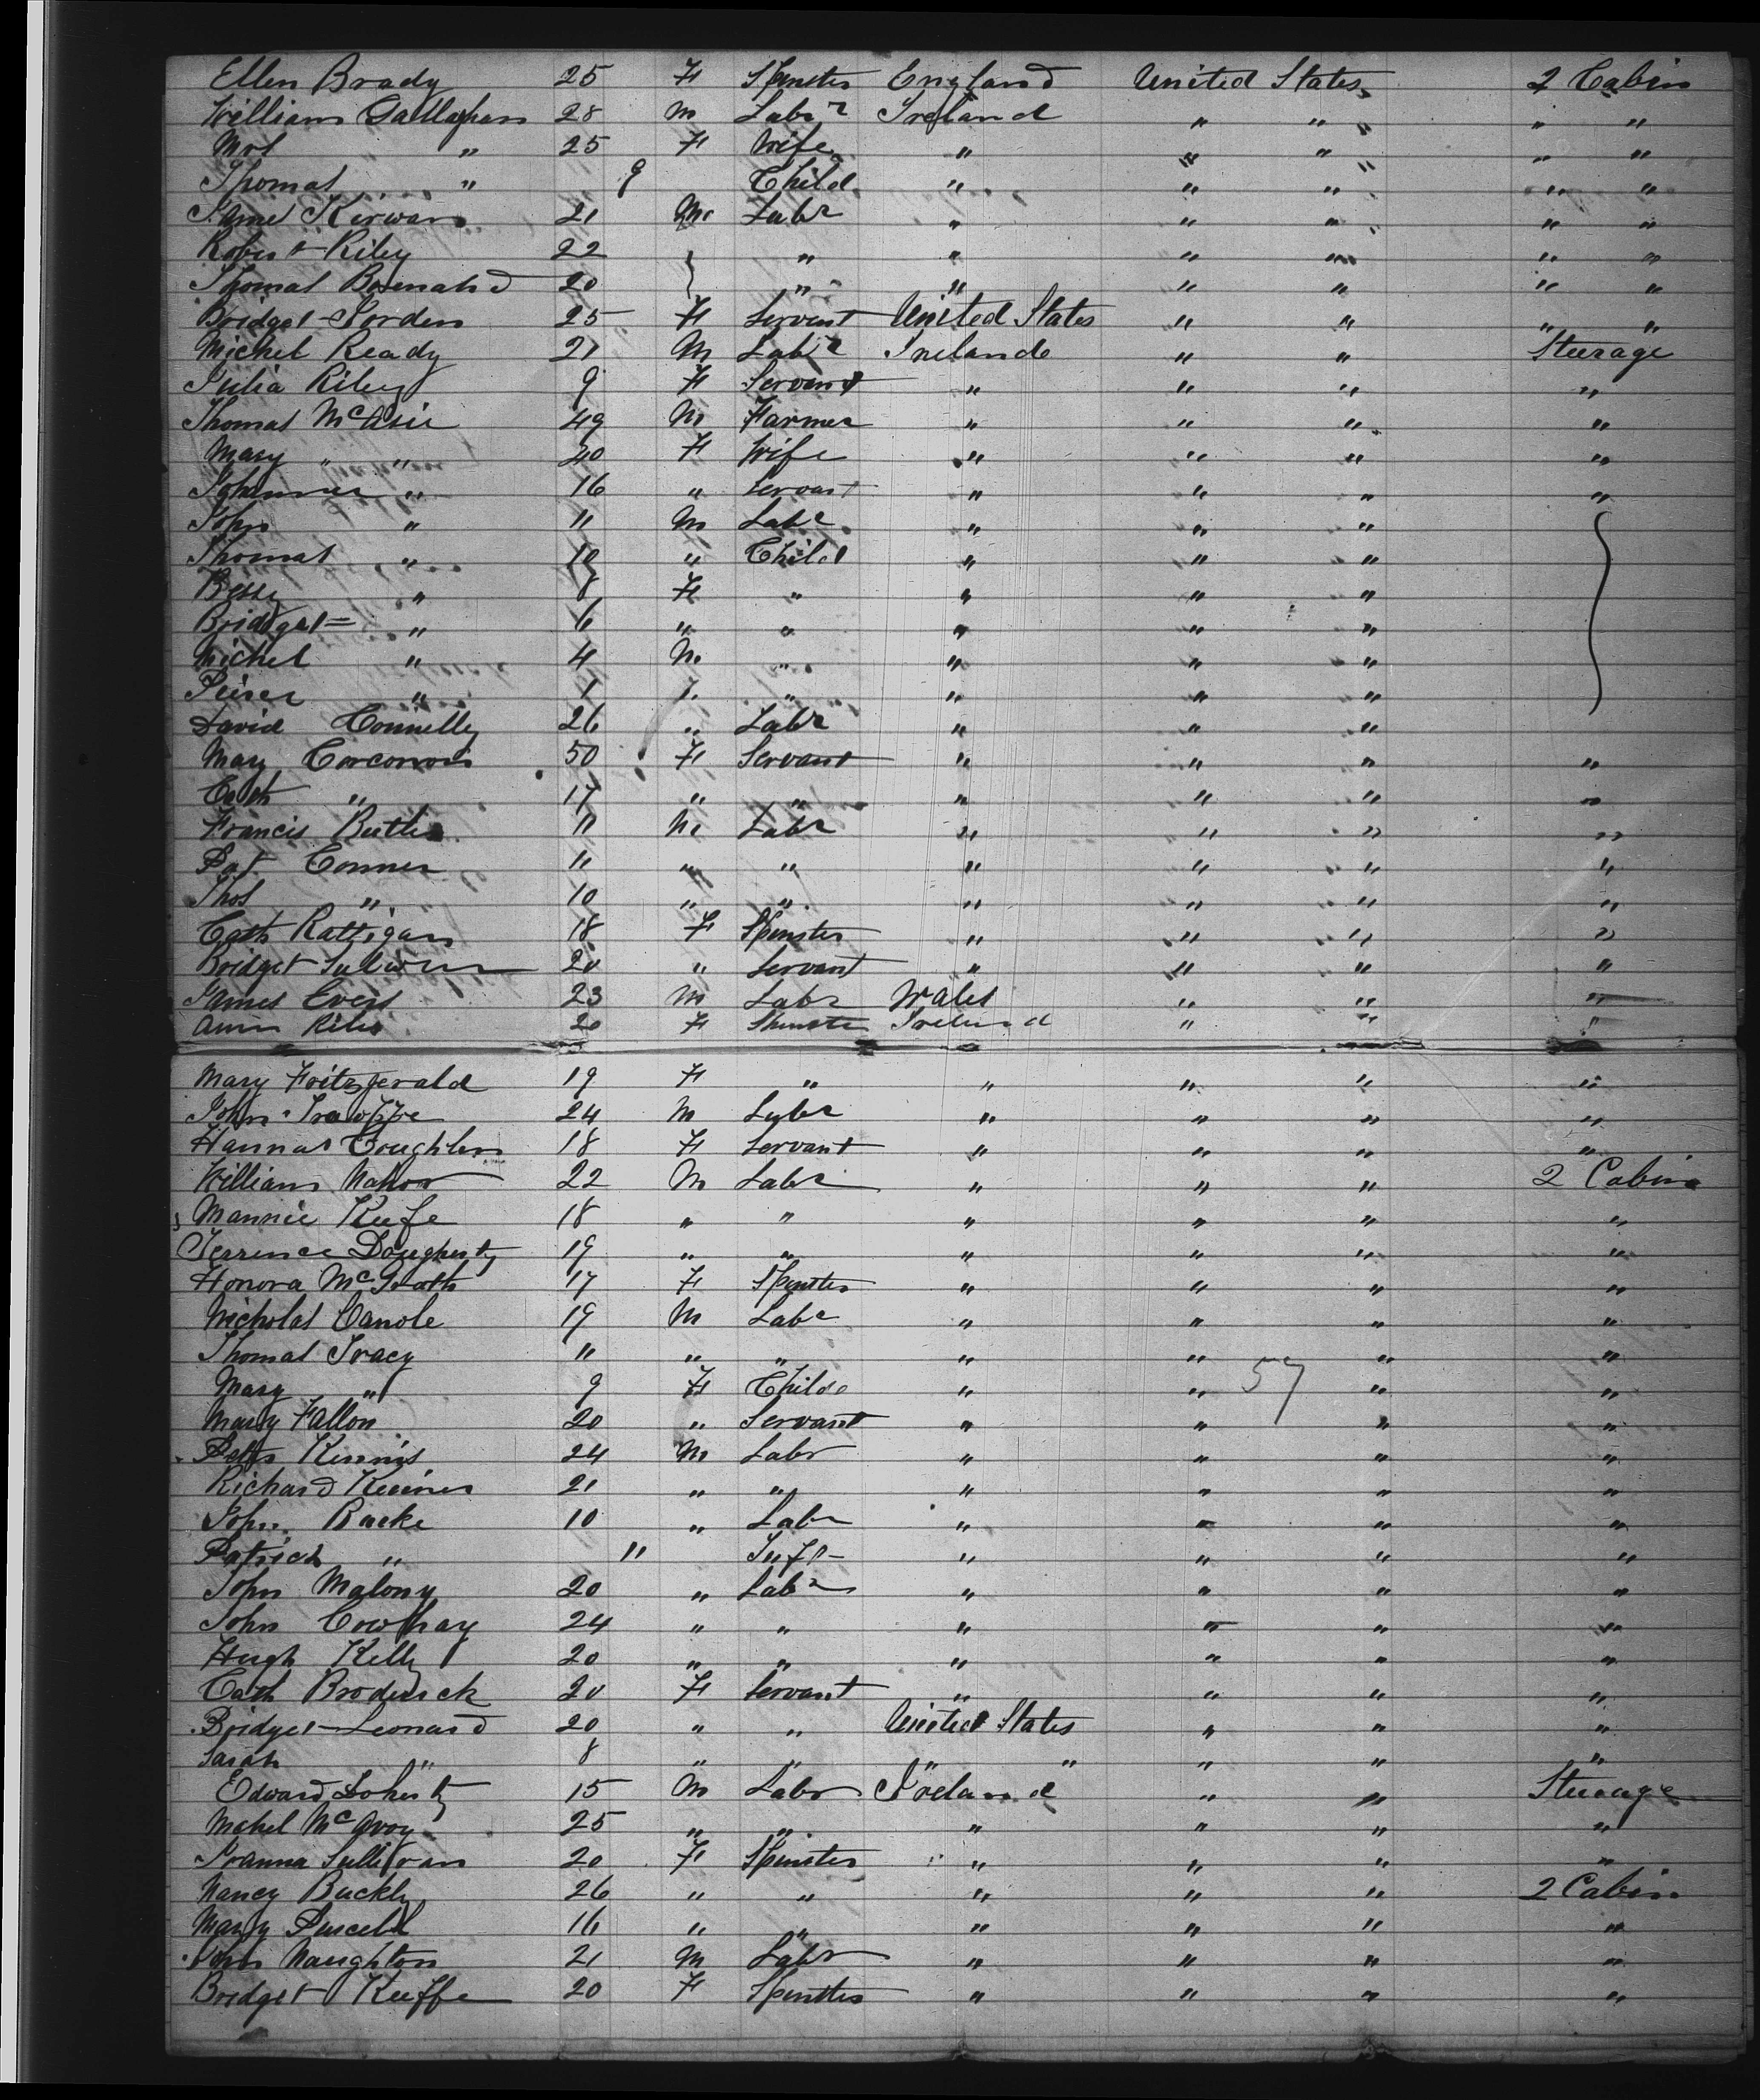 Ellen Brady 25 F Spinster England United States 2 Cabin
William Gallaghan 28 M Labr Ireland " " " "
Mrs " 25 F Wife " " " " "
Thomas " 9 Child " " " " "
James Kirwan 21 M Labr " " " " "
Robert Riley 22 } " " " " " "
Thomas 20 } " " " " " "
Bridget Jorden 25 F Servant United States " " " "
Michel Ready 21 M Labr Ireland " " Steerage
Julia Riley 9 F Servant " " " "
Thomas 49 M Farmer " " " "
Mary " " 40 F Wife " " " "
" 16 " Servant " " " "
John " 11 M Labr " " "
Thomas " 10 " Child " " "
Bessy " 8 F " " " "
Bridget " 6 " " " " "
Michel " 4 M " " " "
" 1 " " " "
David Connelly 26 " Labr " " "
Mary Corcoran 50 F Servant " " " "
Cath " 17 " " " " " "
Francis Butler 11 M Labr " " " "
Pat Conner 11 " " " " " "
Thos " 10 " " " " " "
Cath Rattigan 18 F Spinster " " " "
Bridget 20 " Servant " " " "
James Evers 23 M Labr Wales " " "
Ann Riley 20 F Spinster Ireland " " "
Mary Fritzgerald 19 F " " " " "
John 24 M Labr " " " "
Hannas Coughlen 18 F Servant " " " "
William Mahon 22 M Labr " " " 2 Cabin
Mannie Keefe 18 " " " " " "
Terrence Dougherty 19 " " " " " "
Honora McGrath 17 F Spinster " " " "
Nicholas Canole 19 M Labr " " " "
Thomas Tracy 11 " " " " " "
Mary " 9 F Child " " 57 " "
Mary Fallon 20 " Servant " " " "
Kinnis 24 M Labr " " " "
Richard 21 " " " " " "
John Burke 10 " Labr " " " "
Patrick " 11 Inft " " " "
John Malony 20 " Labr " " " "
John Cowhay 24 " " " " " "
Hugh Kelly 20 " " " " " "
Cath Broderick 20 F Servant " " " "
Bridget Leonard 20 " " United States " " "
Sarah " 8 " " " " " " "
Edward Doherty 15 M Labr Ireland " " Steerage
Michel McAvoy 25 " " " " " "
Joanna Sullivan 20 F Spinster " " " "
Nancy Buckly 26 " " " " " 2 Cabin
Mary Purcell 16 " " " " " "
John Naughton 21 M Labr " " " "
Bridget Keeffe 20 F Spinster " " " "